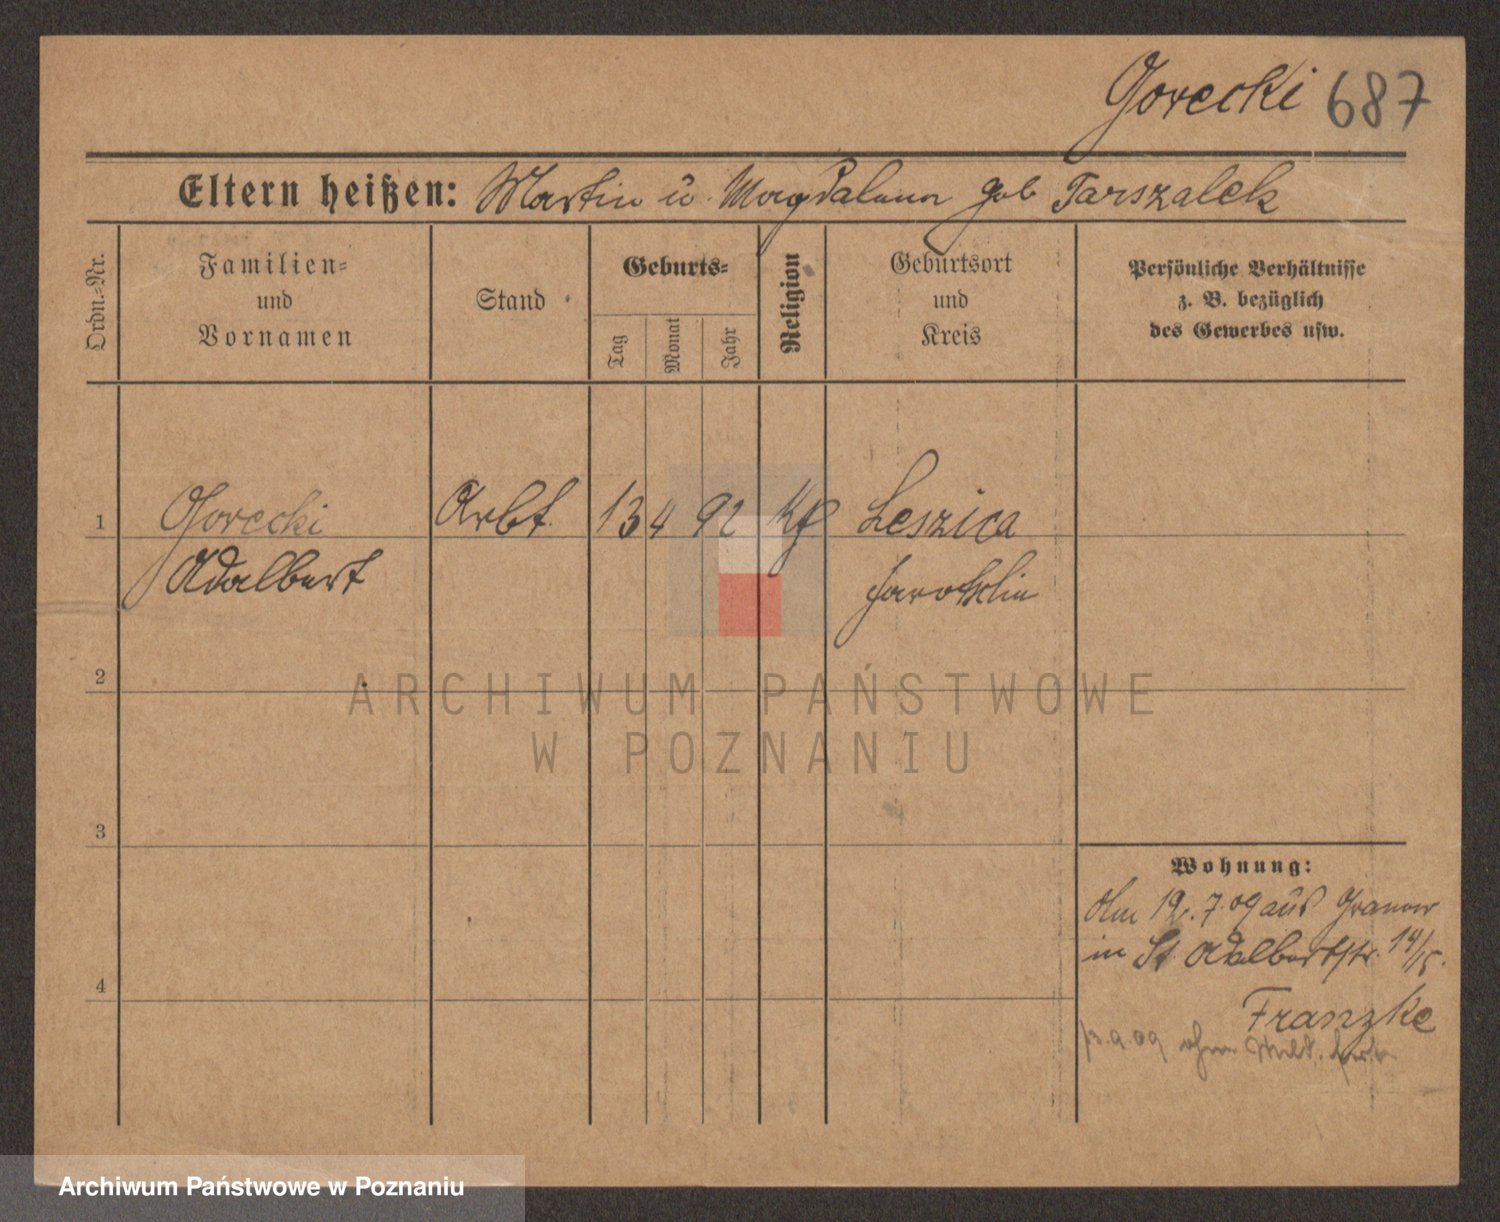 Gorecki 687
Eltern heißen: Martin u. Magdalena geb Tarszalek
Ordn.-Nr.
Familien- und Vornamen
Stand
Geburts-
Tag
Monat
Jahr
Religion
Geburtsort und Kreis
Persönliche Verhältnisse
z. B. bezüglich
des Gewerbes usw.
1 Gorecki Arbt. 13 4 92 Kf Leszica
Adalbert Jarotschin
2
3
Wohnung:
Am 12.7.09 aus Granow
in St. Adalbertstr. 14/15.
4
Franzke
13.9.09 ohne Meld.
ARCHIWUM PAŃSTWOWE
W POZNANIU
Archiwum Państwowe w Poznaniu